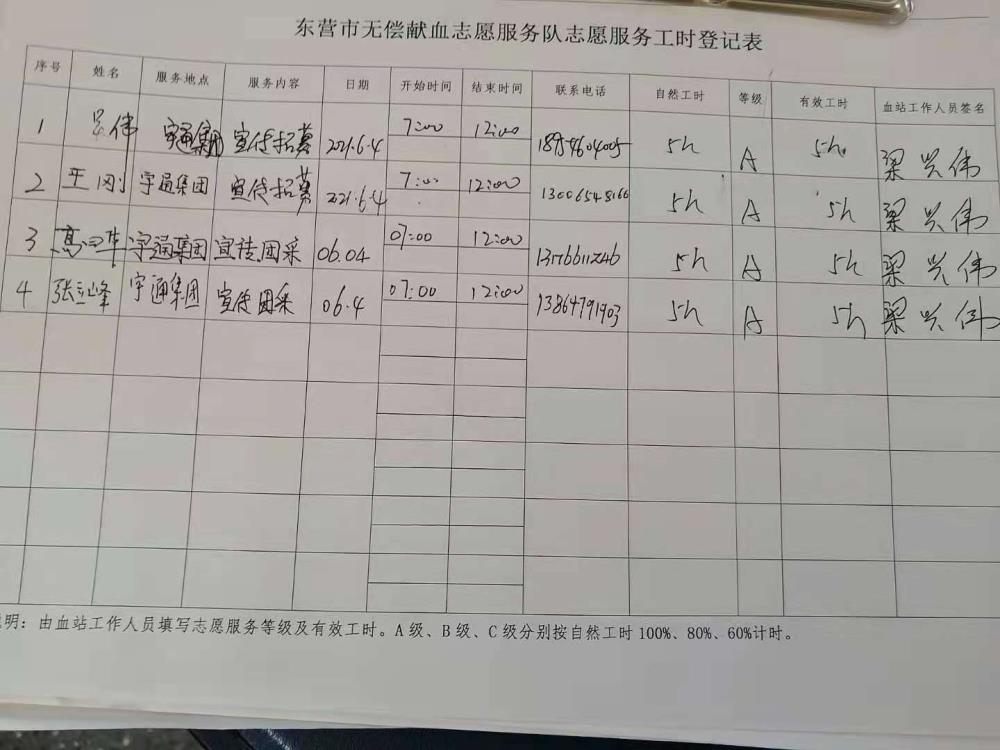 东营市无偿献血志愿服务队志愿服务工时登记表
序号 姓名 服务地点 服务内容 日期 开始时间 结束时间 联系电话 自然工时 等级 有效工时 血站工作人员签名
1 吴伟 宇通集团 宣传招募 2021.6.4 7:00 12:00 5h A 5h 梁兴伟
2 王刚 宇通集团 宣传招募 2021.6.4 7:00 12:00 13006548166 5h A 5h 梁兴伟
3 宇通集团 宣传团采 06.04 07:00 12:00 5h A 5h 梁兴伟
4 张立峰 宇通集团 宣传团采 06.4 07:00 12:00 13864791903 5h A 5h 梁兴伟
明：由血站工作人员填写志愿服务等级及有效工时。A级、B级、C级分别按自然工时100%、80%、60%计时。